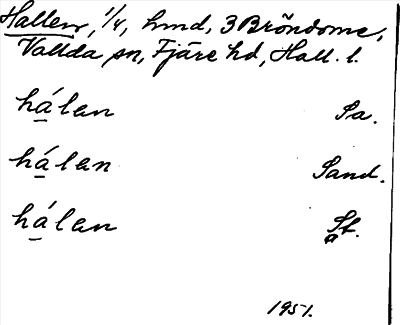 Hallen, 1/4, hmd, 3 Bröndome,
Vallda sn, Fjäre hd, Hall. l.
há̱lan Sa.
há̱lan Sand.
há̱lan St.
1951.